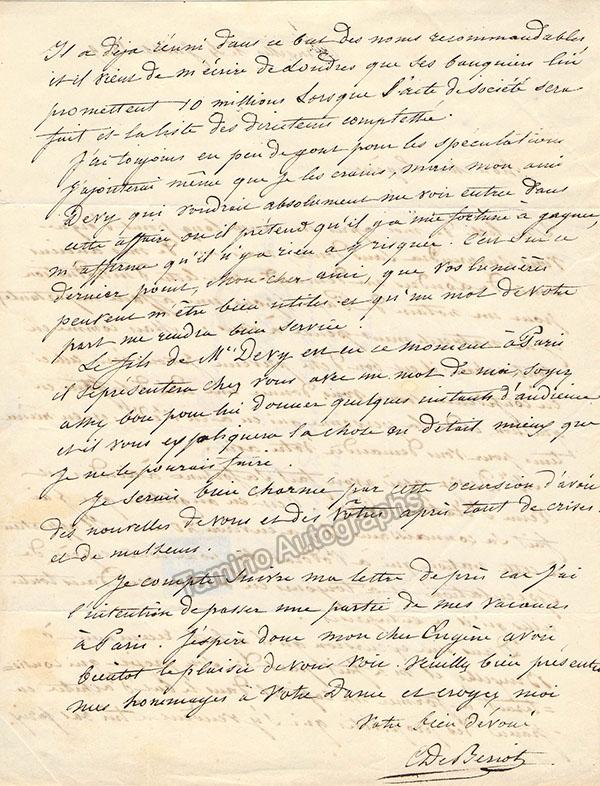 Il a déja réuni dans ce but des noms recommandables
et il vient de m'écrire de Londres que ses banquiers lui
promettent 10 millions lorsque l'acte de société sera
fait et la liste des directeurs complettée.
J'ai toujours eu peu de gout pour les spéculations
j'ajouterai même que je les crains, mais mon ami
Devy qui voudrait absolument me voir entrer dans
cette affaire ou il prétend qu'il y a une fortune à gagner,
m'affirme qu'il n'y a rien a y risquer. C'est sur ce
dernier point, mon cher ami, que vos lumières
peuvent m'être bien utiles et qu'un mot de votre
part me rendra bien service.
Le fils de Mr Devy est en ce moment à Paris
il se présentera chez vous avec un mot de moi, soyez
assez bon pour lui donner quelques instants d'audience
et il vous expliquera la chose en détail mieux que
je ne le pourrais faire.
Je serais bien charmé par cette occasion d'avoir
des nouvelles de vous et des vôtres après tout de crises
et de malheurs.
Tamino Autographs
Je compte suivre ma lettre de près car j'ai
l'intention de passer une partie de mes vacances
à Paris. J'espère donc mon cher Eugène avoir
bientot le plaisir de vous voir. Veuillez bien présenter
mes hommages à votre Dame et croyez moi
votre bien dévoué
C De Beriot